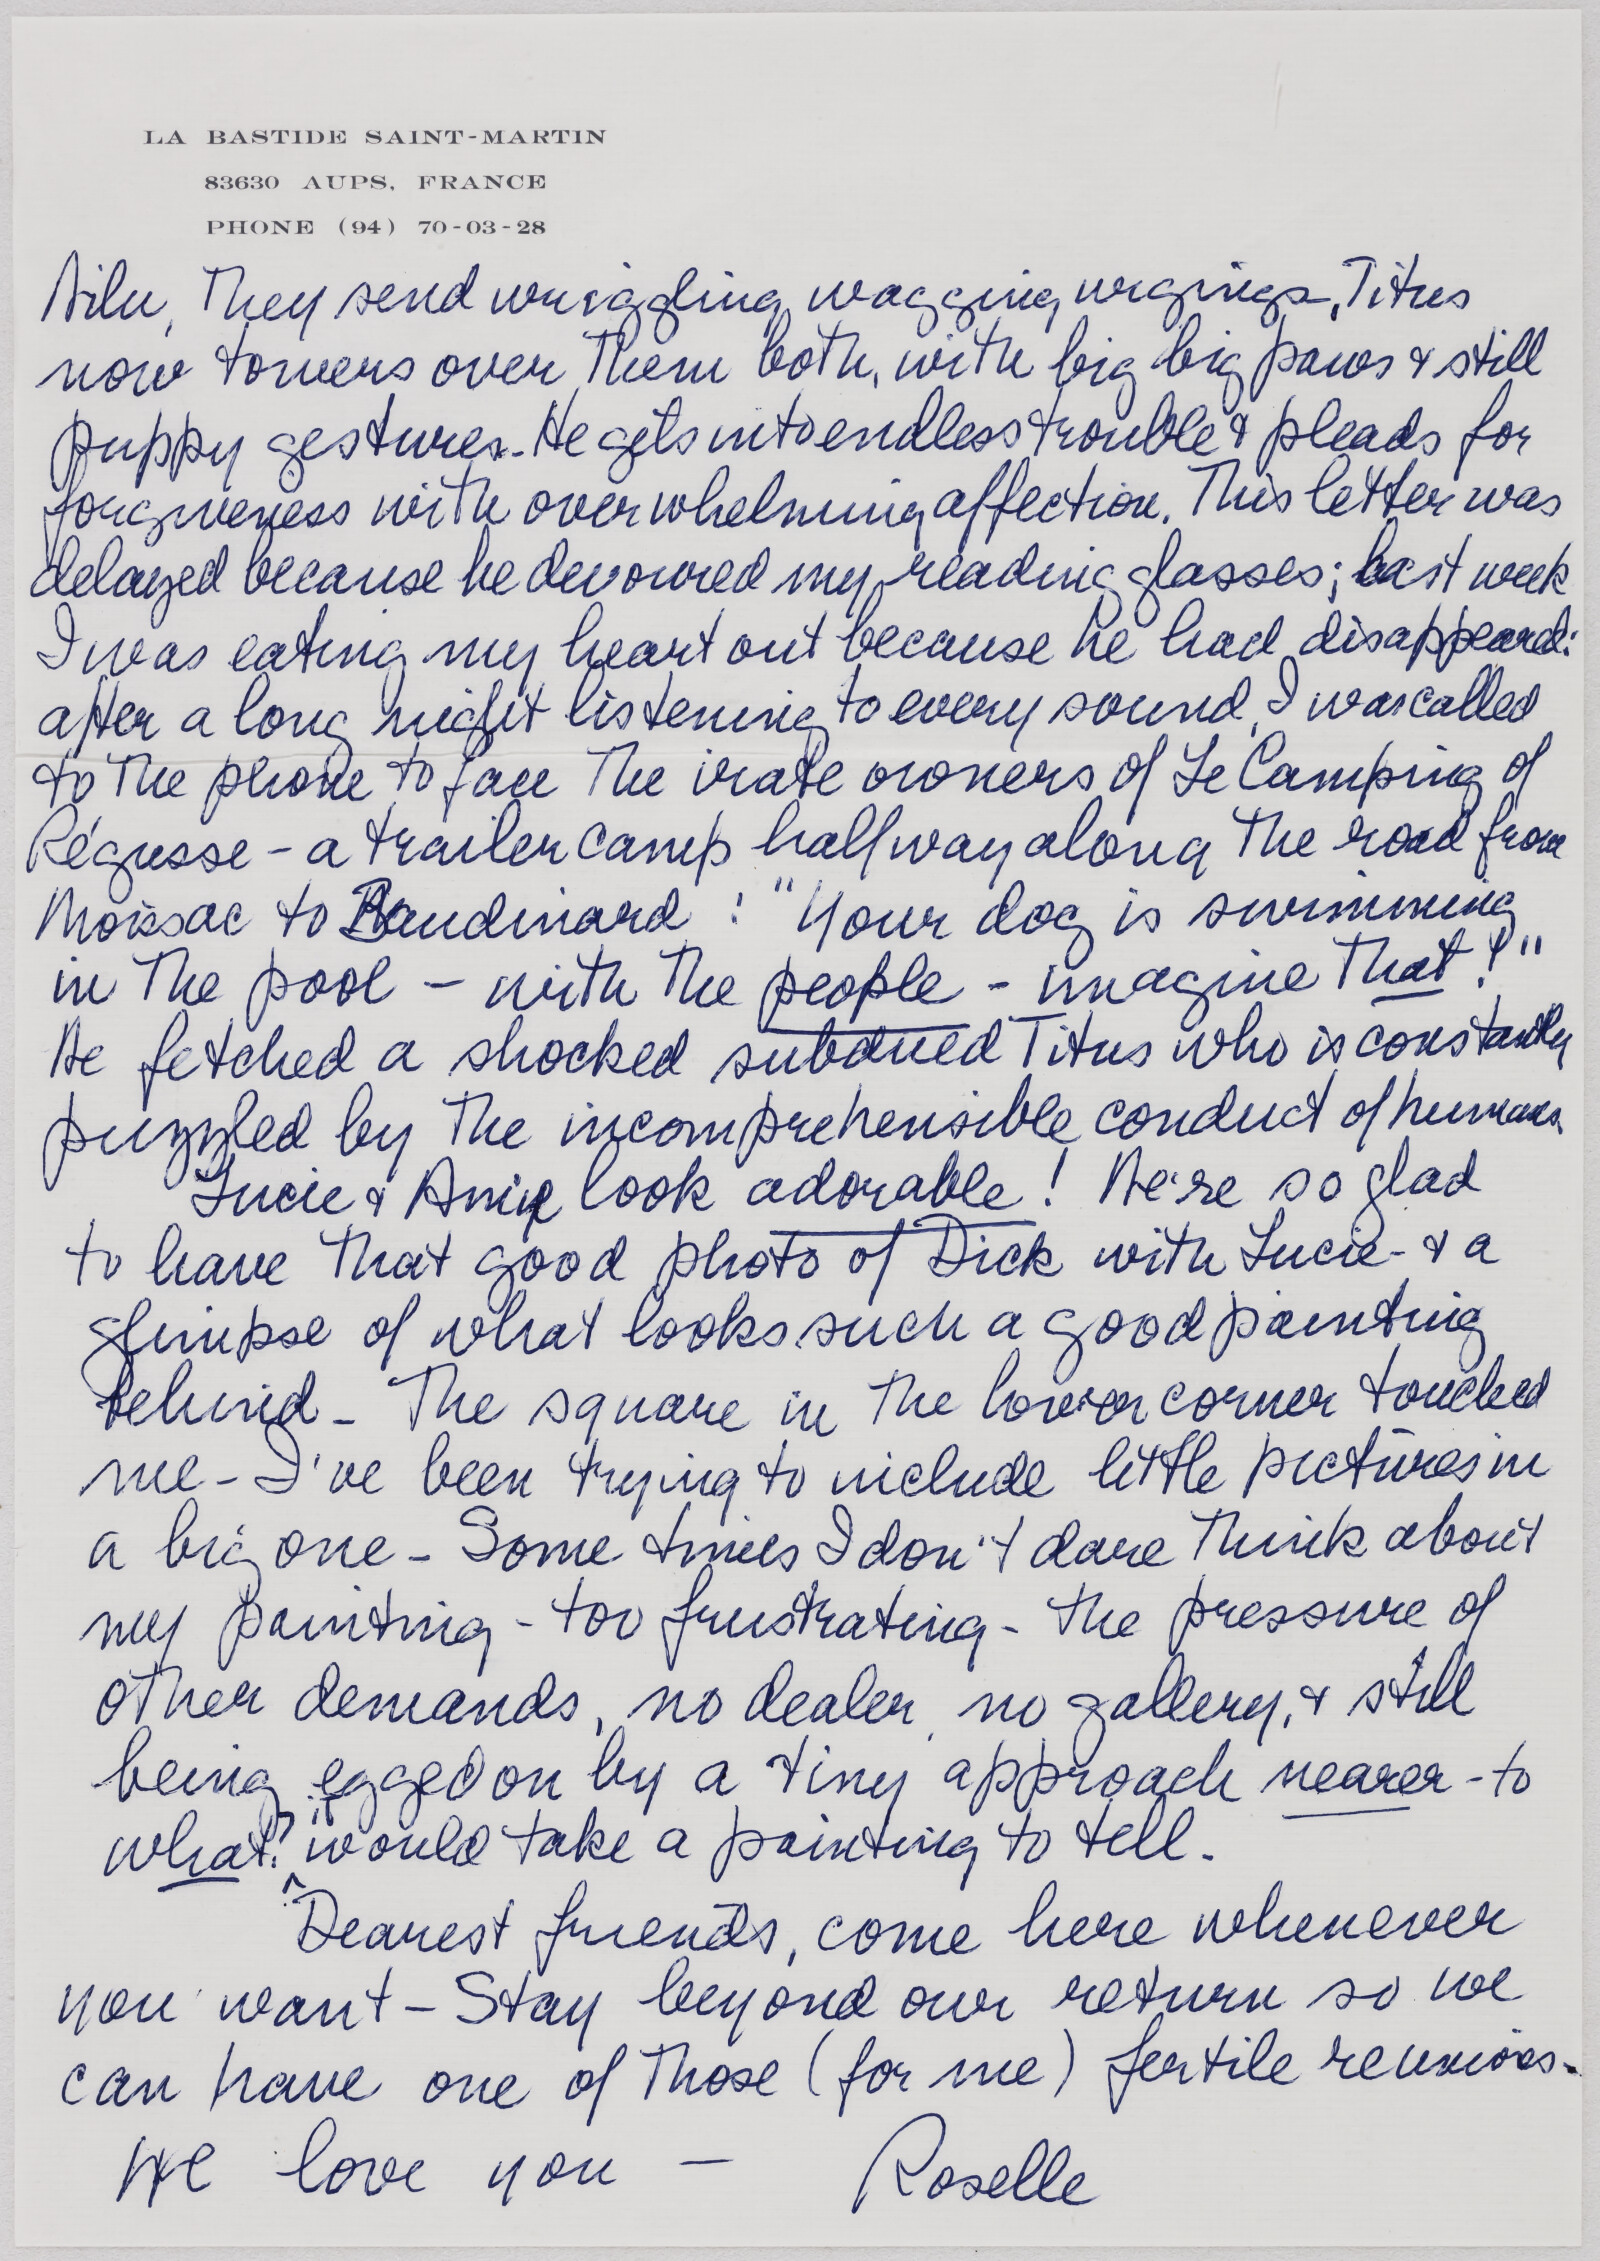 LA BASTIDE SAINT-MARTIN
83630 AUPS, FRANCE
PHONE (94) 70-03-28
They send wriggling, wagging urgings, Titus
now towers over them both, with big big paws & still
puppy gestures. He gets into endless trouble & pleads for
forgiveness with overwhelming affection. This letter was
delayed because he devoured my reading glasses; last week
I was eating my heart out because he had disappeared:
after a long night listening to every sound, I was called
to the phone to face the irate owners of Le Camping of
Régusse - a trailer camp halfway along the road from
Moissac to Baudinard : "Your dog is swimming
in the pool - with the people - imagine that!"
We fetched a shocked subdued Titus who is constantly
puzzled by the incomprehensible conduct of humans.
Lucie & look adorable! We're so glad
to have that good photo of Dick with Lucie - & a
glimpse of what looks such a good painting
behind - The square in the lower corner touched
me - I've been trying to include little pictures in
a big one - Some times I don't dare think about
my painting - too frustrating - the pressure of
other demands, no dealer, no gallery, & still
being egged on by a tiny approach nearer - to
what? it would take a painting to tell.
Dearest friends, come here whenever
you want - Stay beyond our return so we
can have one of those (for me) fertile reunions -
We love you - Roselle